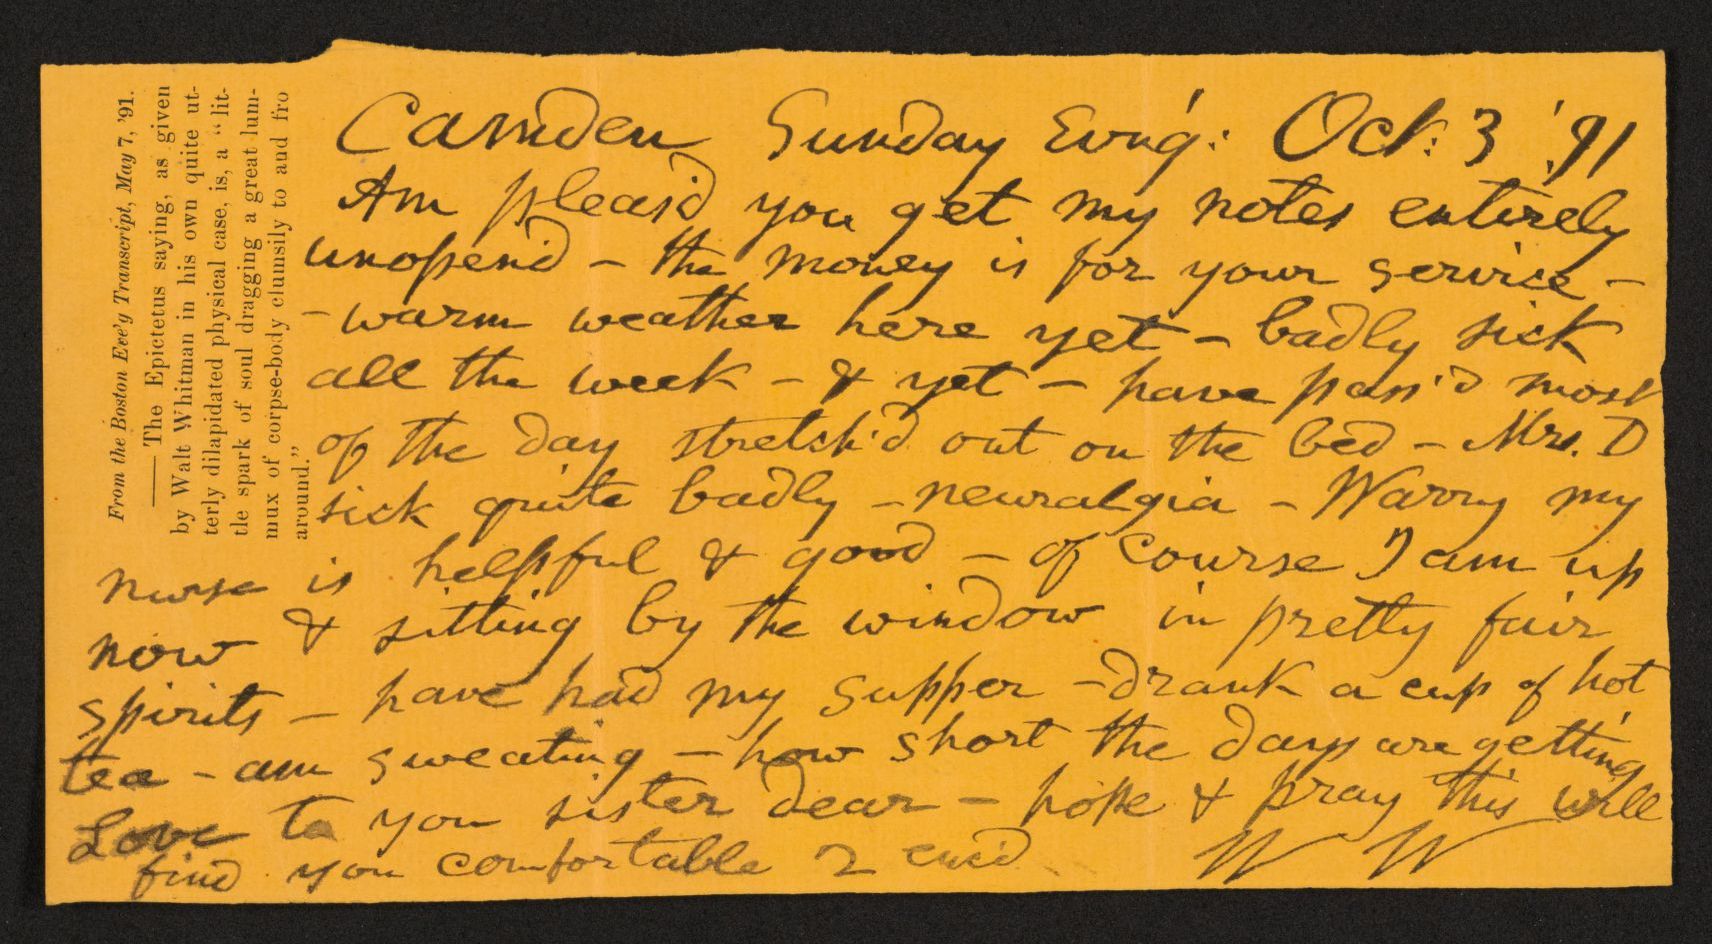 From the Boston Eve'g Transcript, May 7, '91.
— The Epictetus saying, as given
by Walt Whitman in his own quite ut-
terly dilapidated physical case, is, a "lit-
tle spark of soul dragging a great lum-
mux of corpse-body clumsily to and fro
around."
Camden Sunday Evn'g: Oct: 3 '91
Am pleas'd you get my notes entirely
unopen'd – the money is for your service –
– warm weather here yet – badly sick
all the week – & yet – have pass'd most
of the day stretch'd out on the bed – Mrs. D
sick quite badly – neuralgia – Warry my
nurse is helpful & good – of course I am up
now & sitting by the window in pretty fair
spirits – have had my supper – drank a cup of hot
tea – am sweating – how short the days are getting
Love to you sister dear – hope & pray this will
find you comfortable 2 enc'd W W